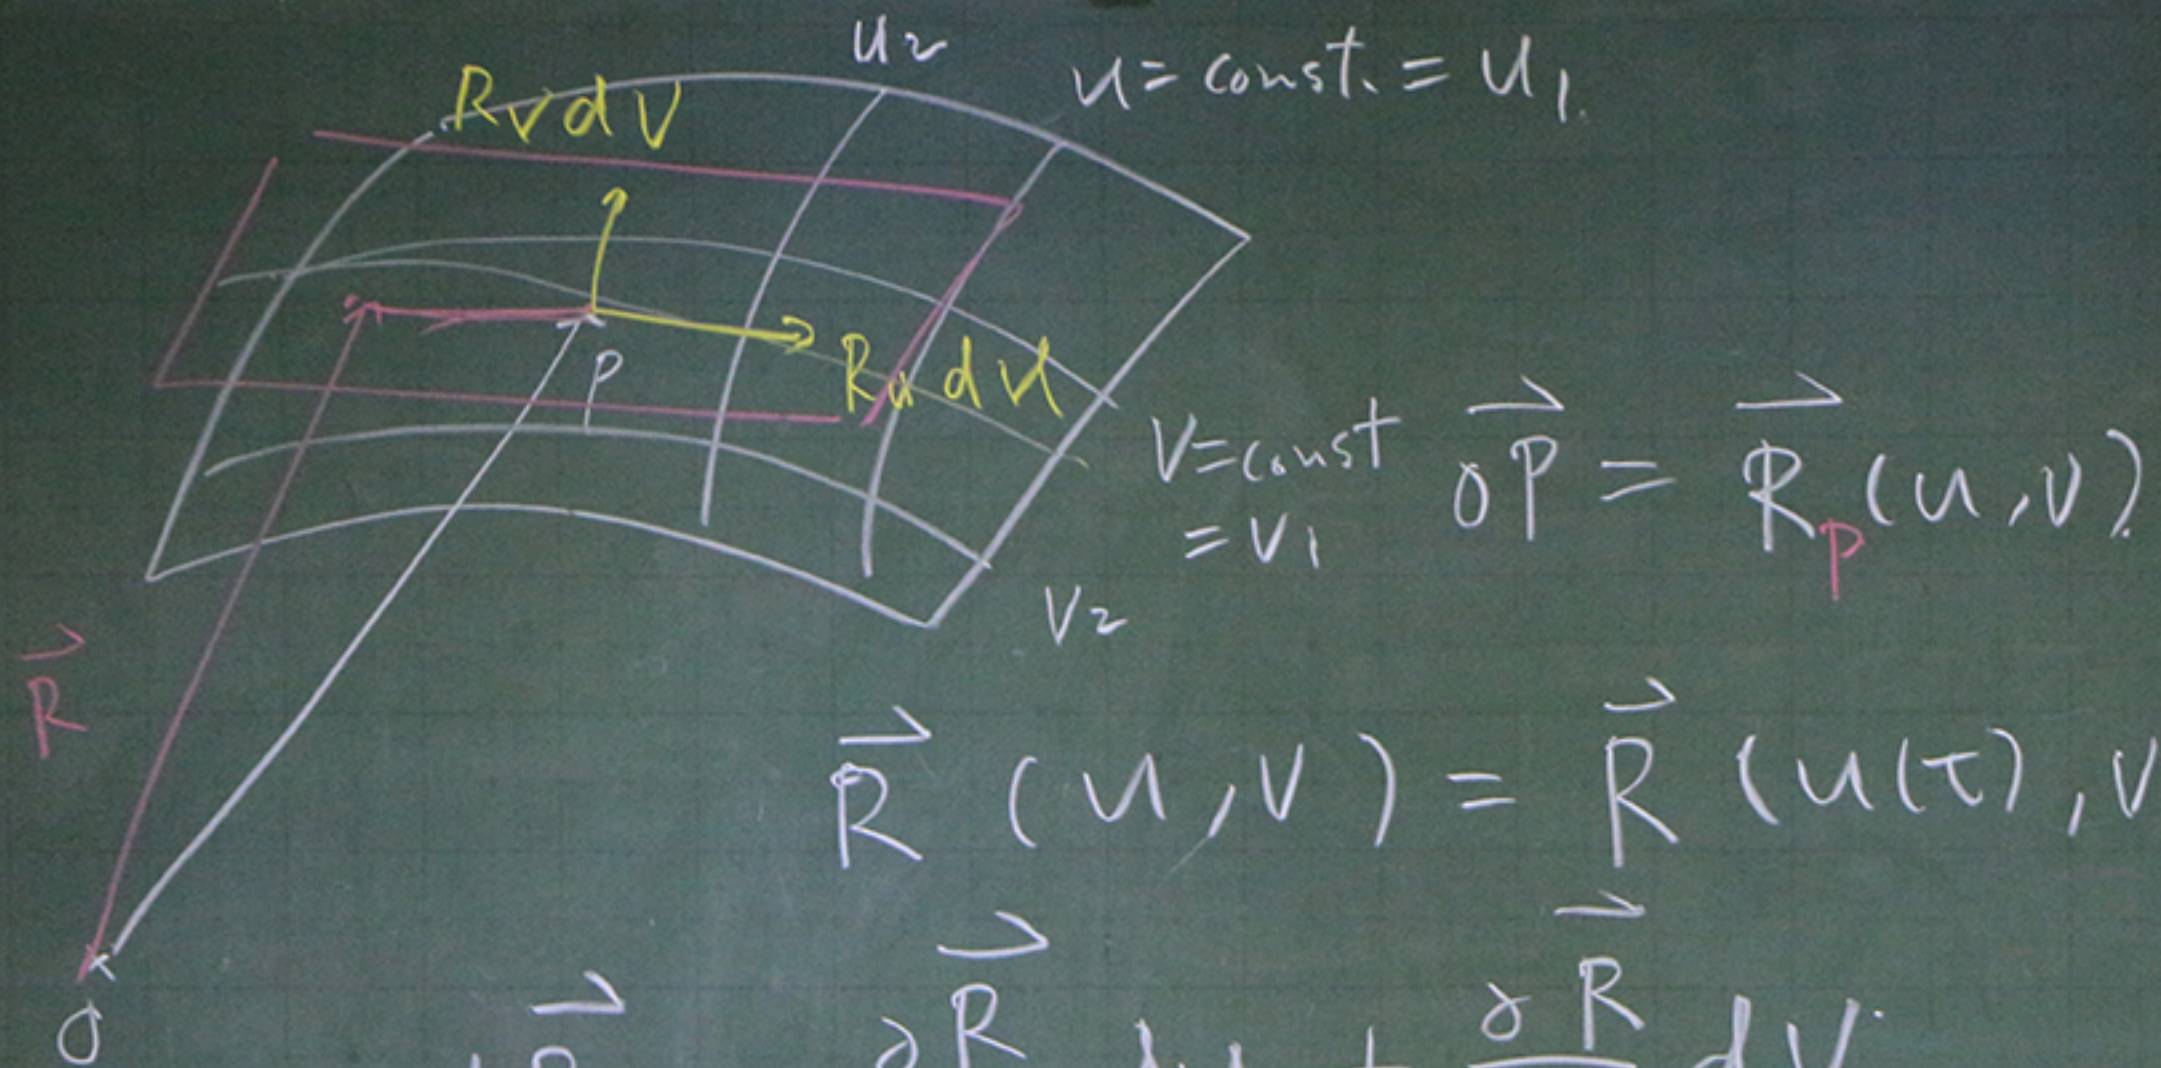 u₂
u = const. = u₁.
Rv dv
P
Ru du
v = const
= v₁
v₂
→OP = →R_P (u, v).
→R
→R (u, v) = →R (u(τ), v
O
∂→R du + ∂→R dv